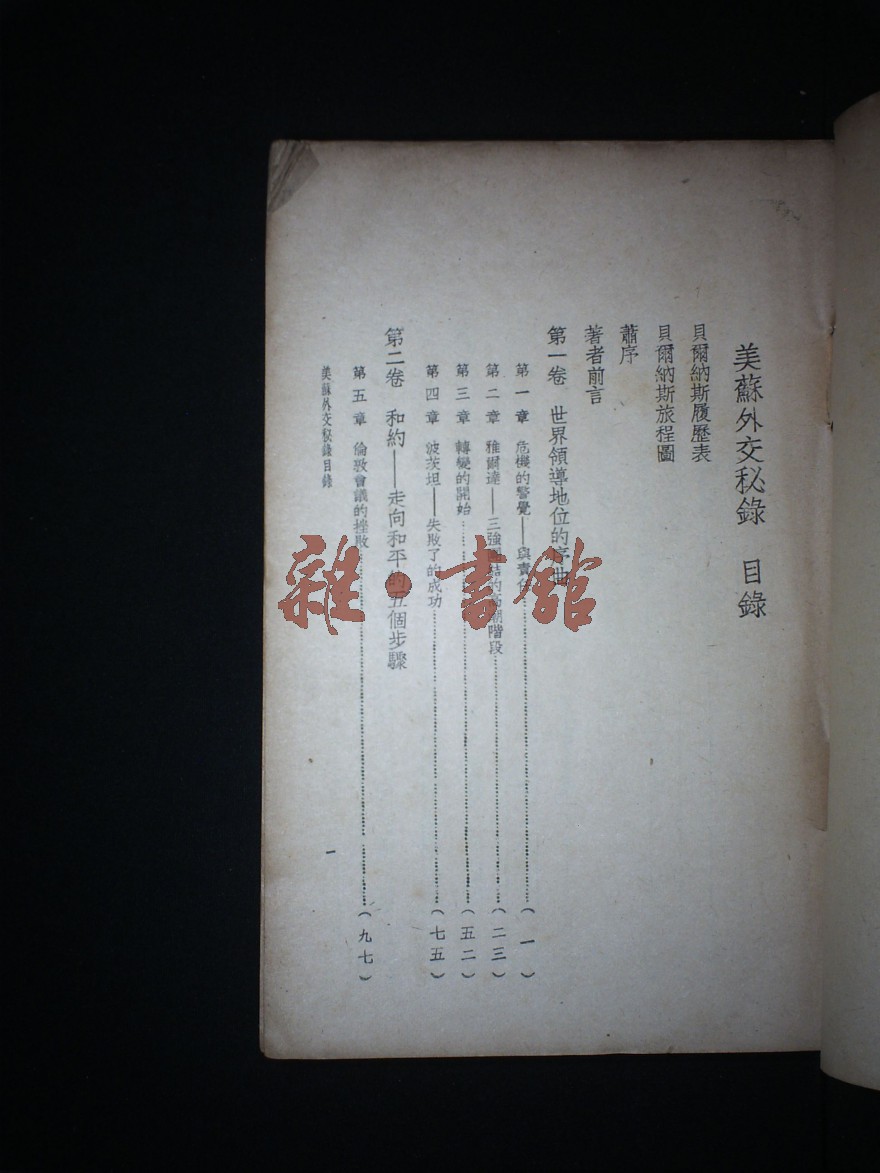 美蘇外交秘錄　目錄
貝爾納斯履歷表
貝爾納斯旅程圖
蕭序
著者前言
第一卷　世界領導地位的序曲
第一章　危機的警覺——與責任……（一）
第二章　雅爾達——三強團結的高潮階段……（二三）
第三章　轉變的開始……（五二）
第四章　波茨坦——失敗了的成功……（七五）
第二卷　和約——走向和平的五個步驟
第五章　倫敦會議的挫敗……（九七）
美蘇外交秘錄目錄
一
雜·書館